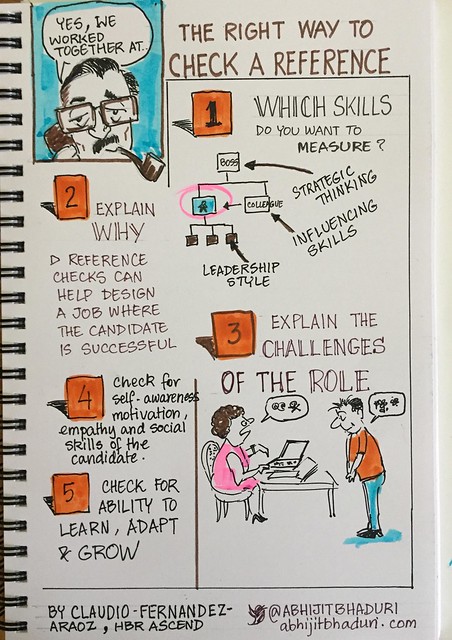 YES, WE
WORKED
TOGETHER AT..
THE RIGHT WAY TO
CHECK A REFERENCE
1
WHICH SKILLS
DO YOU WANT TO
MEASURE?
BOSS
STRATEGIC
THINKING
COLLEAGUE
INFLUENCING
SKILLS
LEADERSHIP
STYLE
2
EXPLAIN
WHY
REFERENCE
CHECKS CAN
HELP DESIGN
A JOB WHERE
THE CANDIDATE
IS SUCCESSFUL
3
EXPLAIN THE
CHALLENGES
OF THE ROLE
4
Check for
self-awareness
motivation,
empathy and social
skills of the
candidate.
5
CHECK FOR
ABILITY TO
LEARN, ADAPT
& GROW
BY CLAUDIO-FERNANDEZ-
ARAOZ, HBR ASCEND
@ABHIJITBHADURI
abhijitbhaduri.com